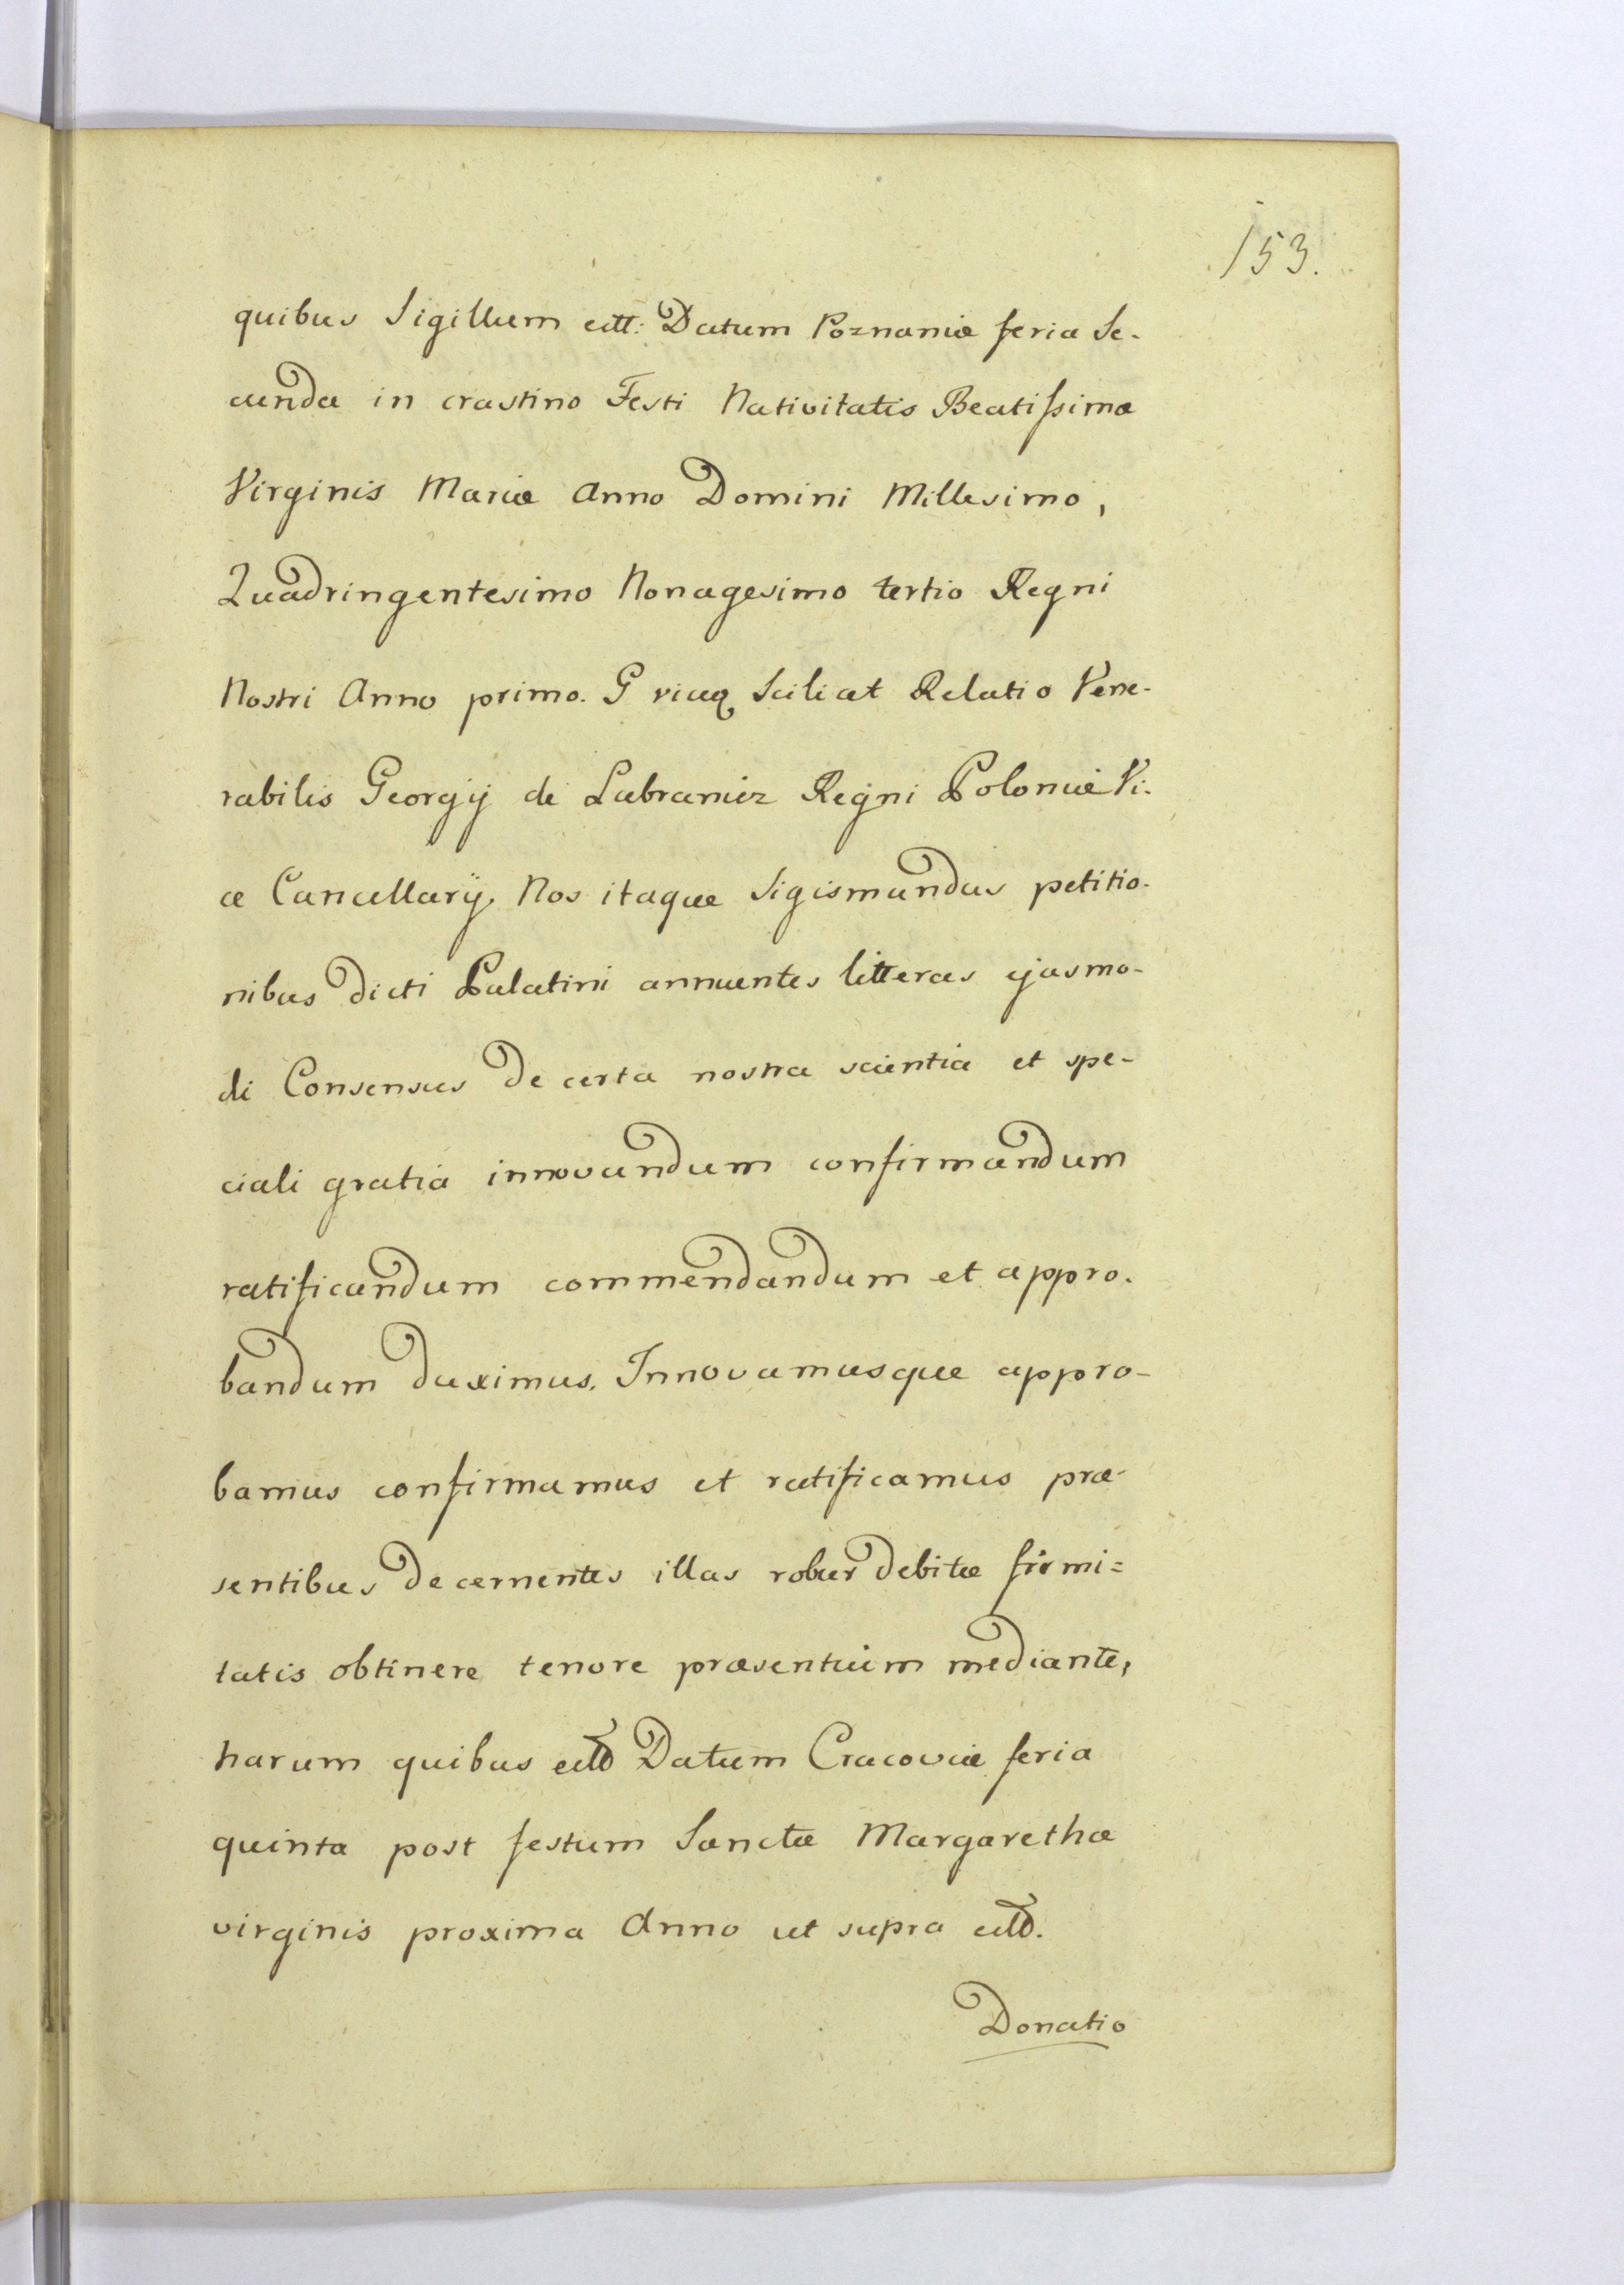 153.
quibus Sigillum ett: Datum Poznaniæ feria Se-
cunda in crastino Festi Nativitatis Beatissimæ
Virginis Mariæ Anno Domini Millesimo,
Quadringentesimo Nonagesimo tertio Regni
Nostri Anno primo. G Scilicet Relatio Vene-
rabilis Georgij de Lubraniez Regni Poloniæ Vi-
ce Cancellarij. Nos itaque Sigismundus petitio-
nibus dicti Palatini annuentes litteras ejusmo-
di Consensus de certa nostra scientia et spe-
ciali gratia innovandum confirmandum
ratificandum commendandum et appro-
bandum duximus. Innovamusque appro-
bamus confirmamus et ratificamus præ-
sentibus decernentes illas robur debitæ firmi=
tatis obtinere tenore præsentium mediante,
harum quibus Datum Cracoviæ feria
quinta post festum Sanctæ Margarethæ
virginis proxima Anno ut supra
Donatio